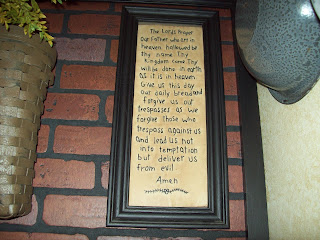 The Lords Prayer
Our Father who art in
heaven hallowed be
thy name Thy
Kingdom come Thy
will be done in earth
as it is in heaven
Give us this day
our daily bread and
forgive us our
trespasses as we
forgive those who
trespass against us
and lead us not
into temptation
but deliver us
from evil
Amen